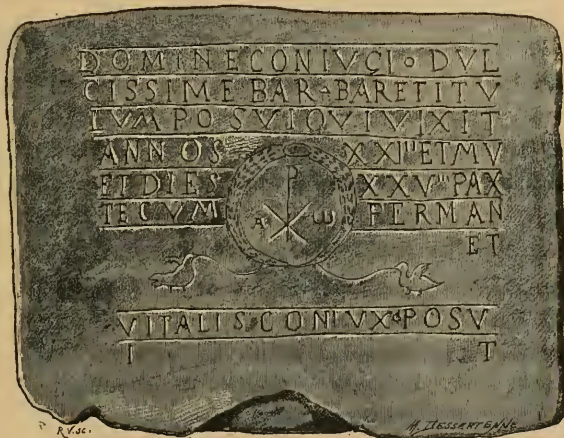 DOMINE CONIVGI ∘ DVL
CISSIME BAR BARE TITV
LVM POSVI QVI VIXIT
ANNOS XXIII ET M V
ET DIES XXVIII PAX
TECVM PERMAN
ET
A Ш
VITALIS CONIVX POSV
I T
R.V. sc.
H. DESSERTENNE